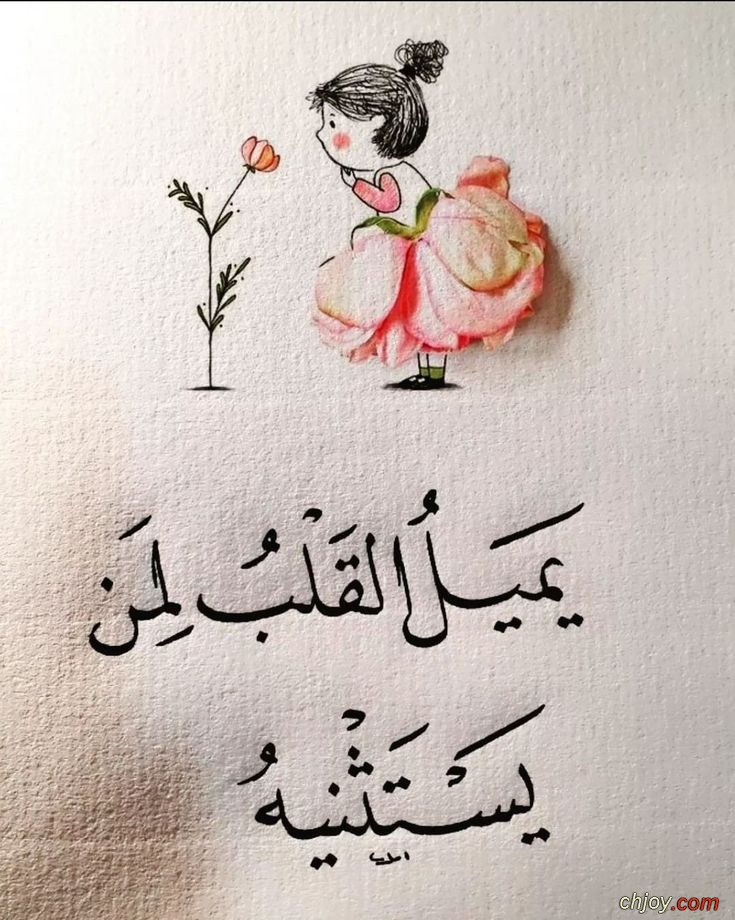 يَمِيَلُ القَلْبُ لِمَن
يَسْتَثْنِيهُ
chjoy.com